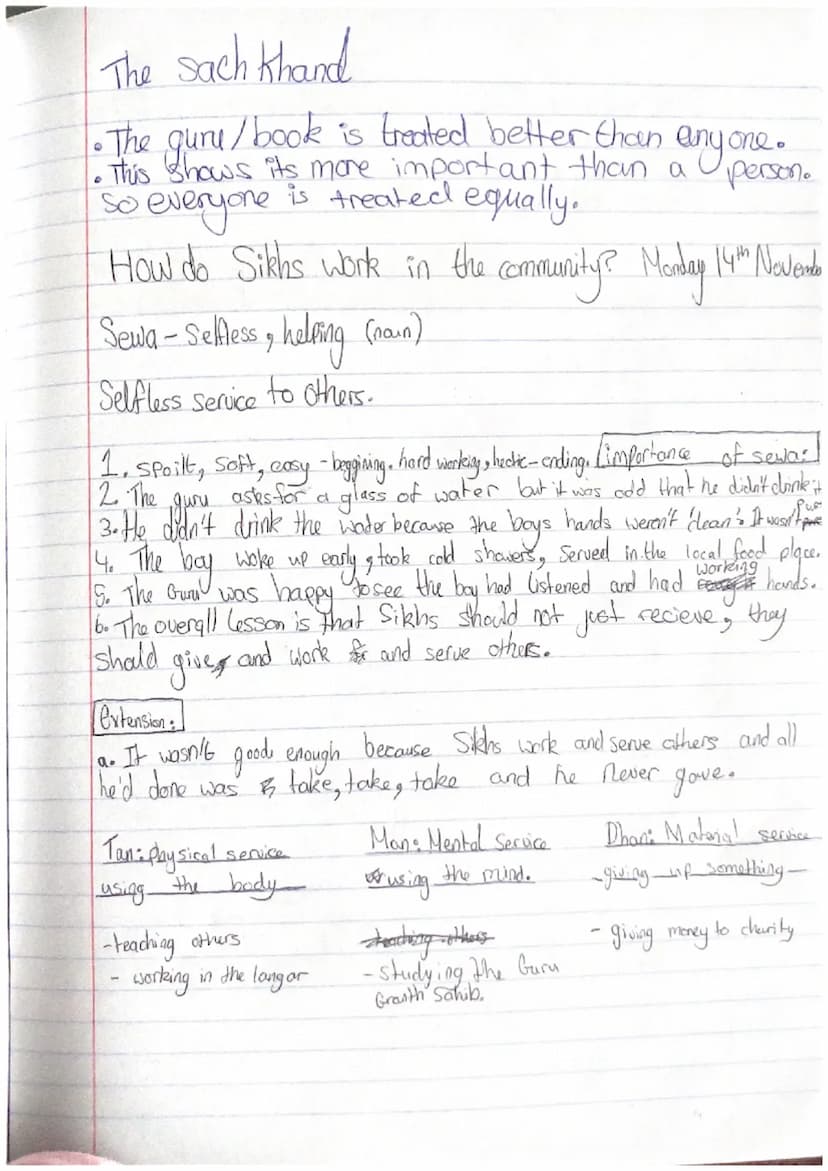 The sach khand
• The guru/book is treated better than anyone.
• This shows its more important than a person.
so everyone is treated equally.
How do Sikhs work in the community? Monday 14th Novembe
Sewa - Selfless, helping (noun)
Selfless service to others.
1. spoilt, soft, easy - beggining. hard working, hectic - ending. importance of sewa:
2. The guru asks for a glass of water but it was odd that he didn't drink it
3. He didn't drink the water because the boys hands weren't 'clean'. It wasn't pure
4. The boy woke up early, took cold showers, served in the local food place.
5. The Guru was happy to see the boy had listened and had working hands.
6. The overall lesson is that Sikhs should not just recieve, they
should give, and work and serve others.
extension:
a. It wasn't good enough because Sikhs work and serve others and all
he'd done was take, take, take and he never gave.
Tan: physical service
using the body
Man: Mental Service
using the mind.
Dhan: Material service
- giving up something -
- teaching others
- working in the langar
teaching others
- studying the Guru
Granth Sahib.
- giving money to charity